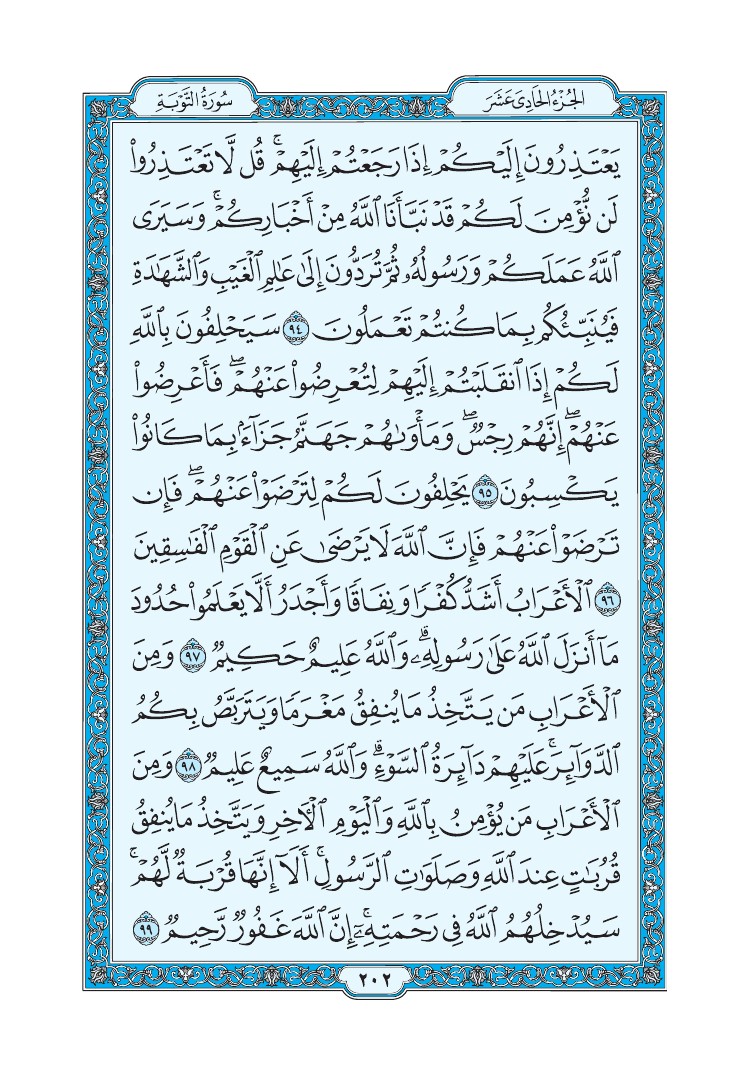 الجُزْءُ الحَادِى عَشَرَ
سُورَةُ التَّوْبَةِ
يَعْتَذِرُونَ إِلَيْكُمْ إِذَا رَجَعْتُمْ إِلَيْهِمْ ۚ قُل لَّا تَعْتَذِرُوا۟
لَن نُّؤْمِنَ لَكُمْ قَدْ نَبَّأَنَا ٱللَّهُ مِنْ أَخْبَارِكُمْ ۚ وَسَيَرَى
ٱللَّهُ عَمَلَكُمْ وَرَسُولُهُۥ ثُمَّ تُرَدُّونَ إِلَىٰ عَـٰلِمِ ٱلْغَيْبِ وَٱلشَّهَـٰدَةِ
فَيُنَبِّئُكُم بِمَا كُنتُمْ تَعْمَلُونَ ٩٤ سَيَحْلِفُونَ بِٱللَّهِ
لَكُمْ إِذَا ٱنقَلَبْتُمْ إِلَيْهِمْ لِتُعْرِضُوا۟ عَنْهُمْ ۖ فَأَعْرِضُوا۟
عَنْهُمْ ۖ إِنَّهُمْ رِجْسٌ ۖ وَمَأْوَىٰهُمْ جَهَنَّمُ جَزَآءًۢ بِمَا كَانُوا۟
يَكْسِبُونَ ٩٥ يَحْلِفُونَ لَكُمْ لِتَرْضَوْا۟ عَنْهُمْ ۖ فَإِن
تَرْضَوْا۟ عَنْهُمْ فَإِنَّ ٱللَّهَ لَا يَرْضَىٰ عَنِ ٱلْقَوْمِ ٱلْفَـٰسِقِينَ
٩٦ ٱلْأَعْرَابُ أَشَدُّ كُفْرًا وَنِفَاقًا وَأَجْدَرُ أَلَّا يَعْلَمُوا۟ حُدُودَ
مَآ أَنزَلَ ٱللَّهُ عَلَىٰ رَسُولِهِۦ ۗ وَٱللَّهُ عَلِيمٌ حَكِيمٌ ٩٧ وَمِنَ
ٱلْأَعْرَابِ مَن يَتَّخِذُ مَا يُنفِقُ مَغْرَمًا وَيَتَرَبَّصُ بِكُمُ
ٱلدَّوَآئِرَ ۚ عَلَيْهِمْ دَآئِرَةُ ٱلسَّوْءِ ۗ وَٱللَّهُ سَمِيعٌ عَلِيمٌ ٩٨ وَمِنَ
ٱلْأَعْرَابِ مَن يُؤْمِنُ بِٱللَّهِ وَٱلْيَوْمِ ٱلْـَٔاخِرِ وَيَتَّخِذُ مَا يُنفِقُ
قُرُبَـٰتٍ عِندَ ٱللَّهِ وَصَلَوَٰتِ ٱلرَّسُولِ ۚ أَلَآ إِنَّهَا قُرْبَةٌ لَّهُمْ ۚ
سَيُدْخِلُهُمُ ٱللَّهُ فِى رَحْمَتِهِۦٓ ۗ إِنَّ ٱللَّهَ غَفُورٌ رَّحِيمٌ ٩٩
٢٠٢